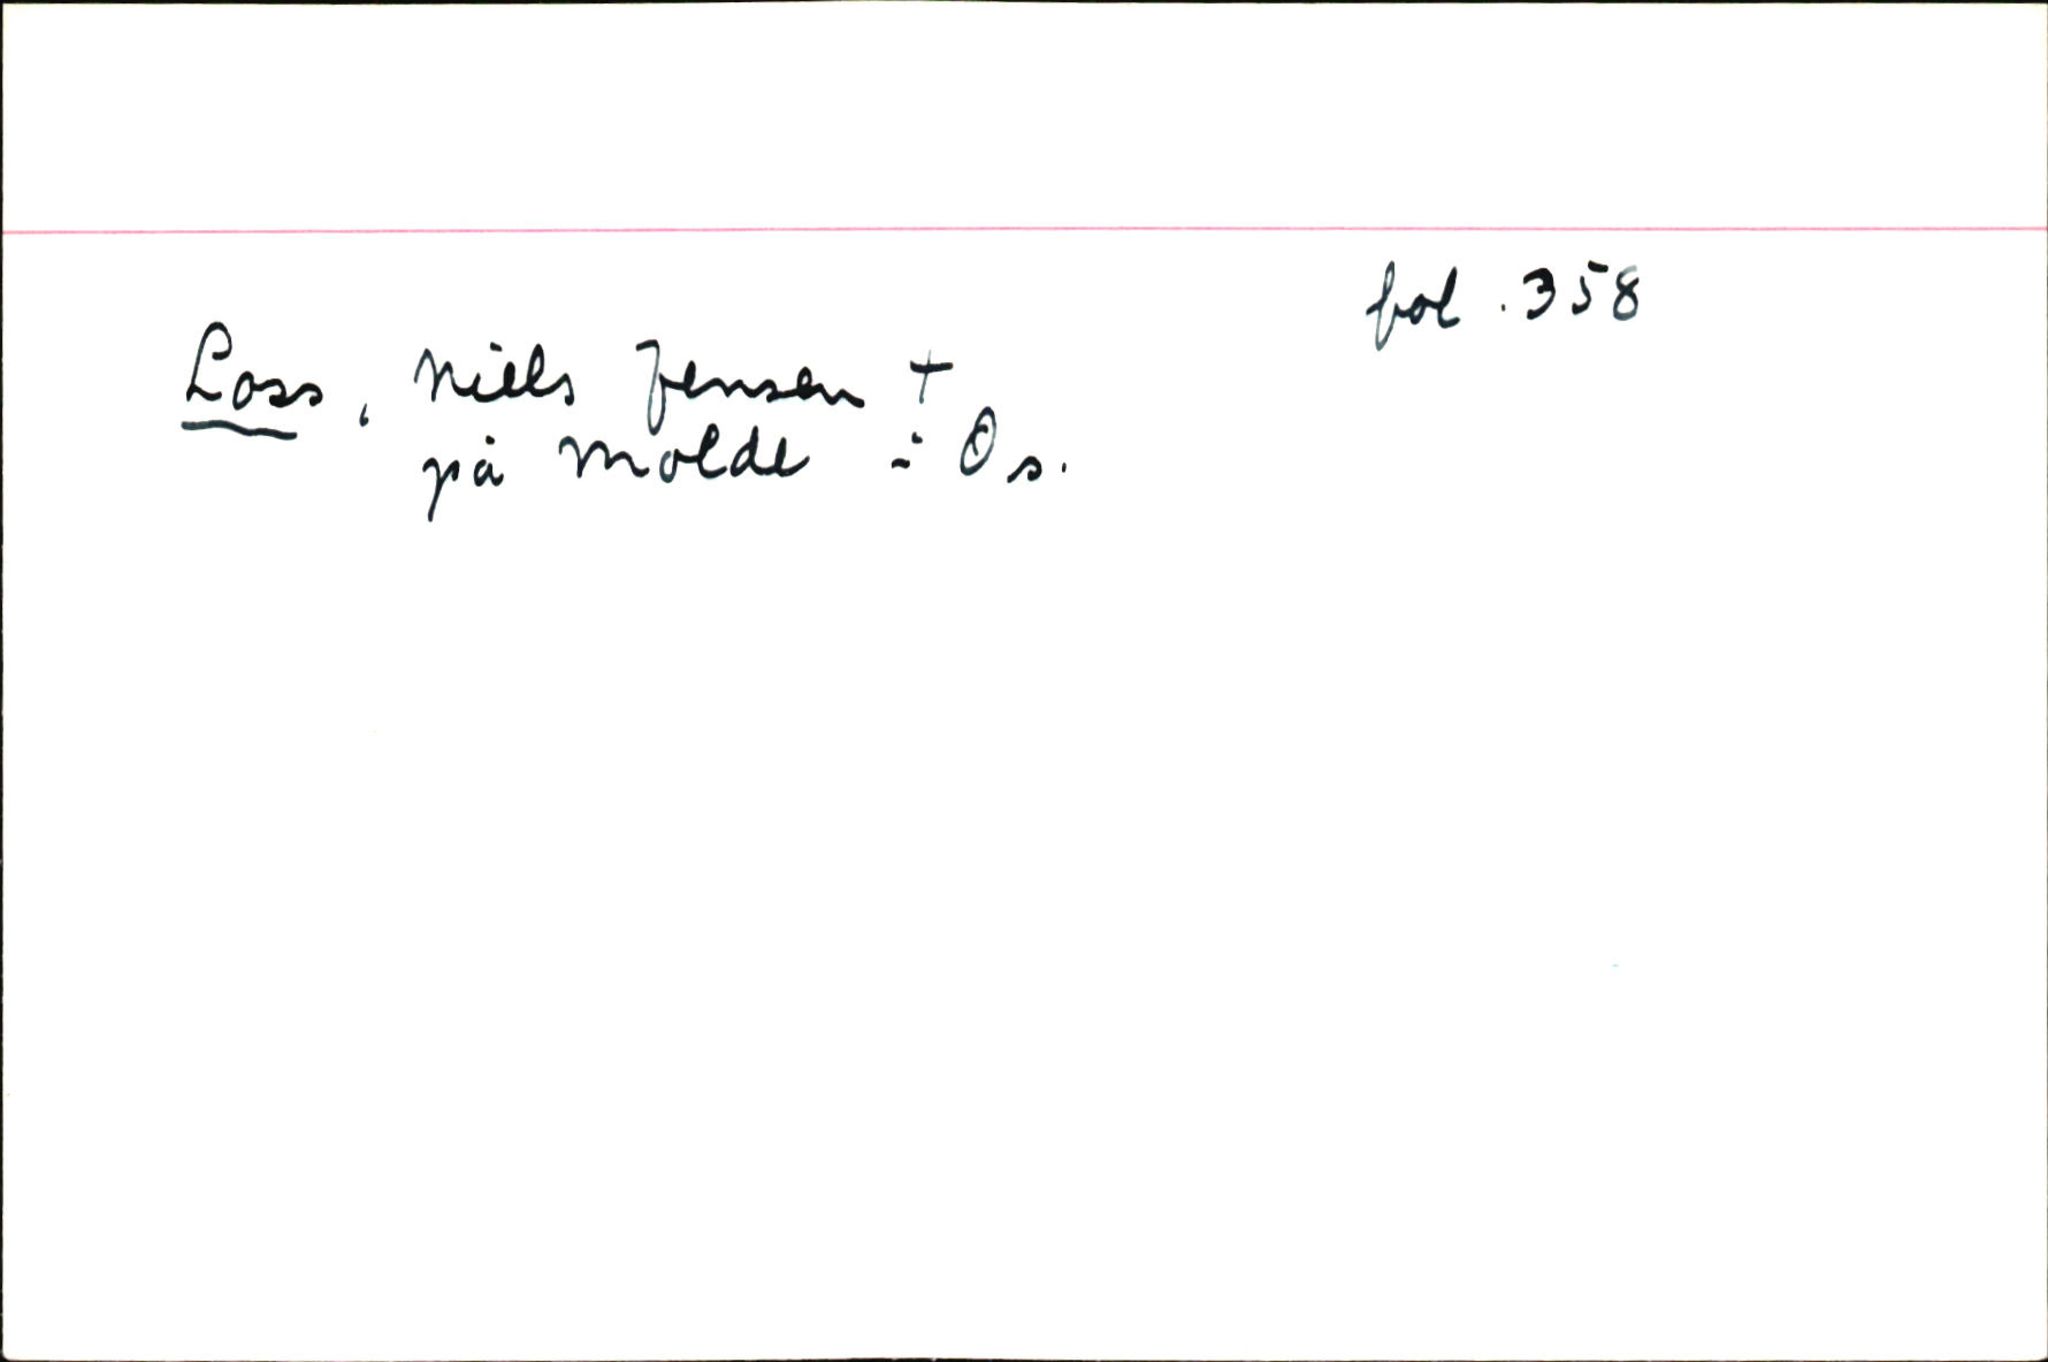 fol. 358
Loss, Niels Jensen †
på Molde i Os.